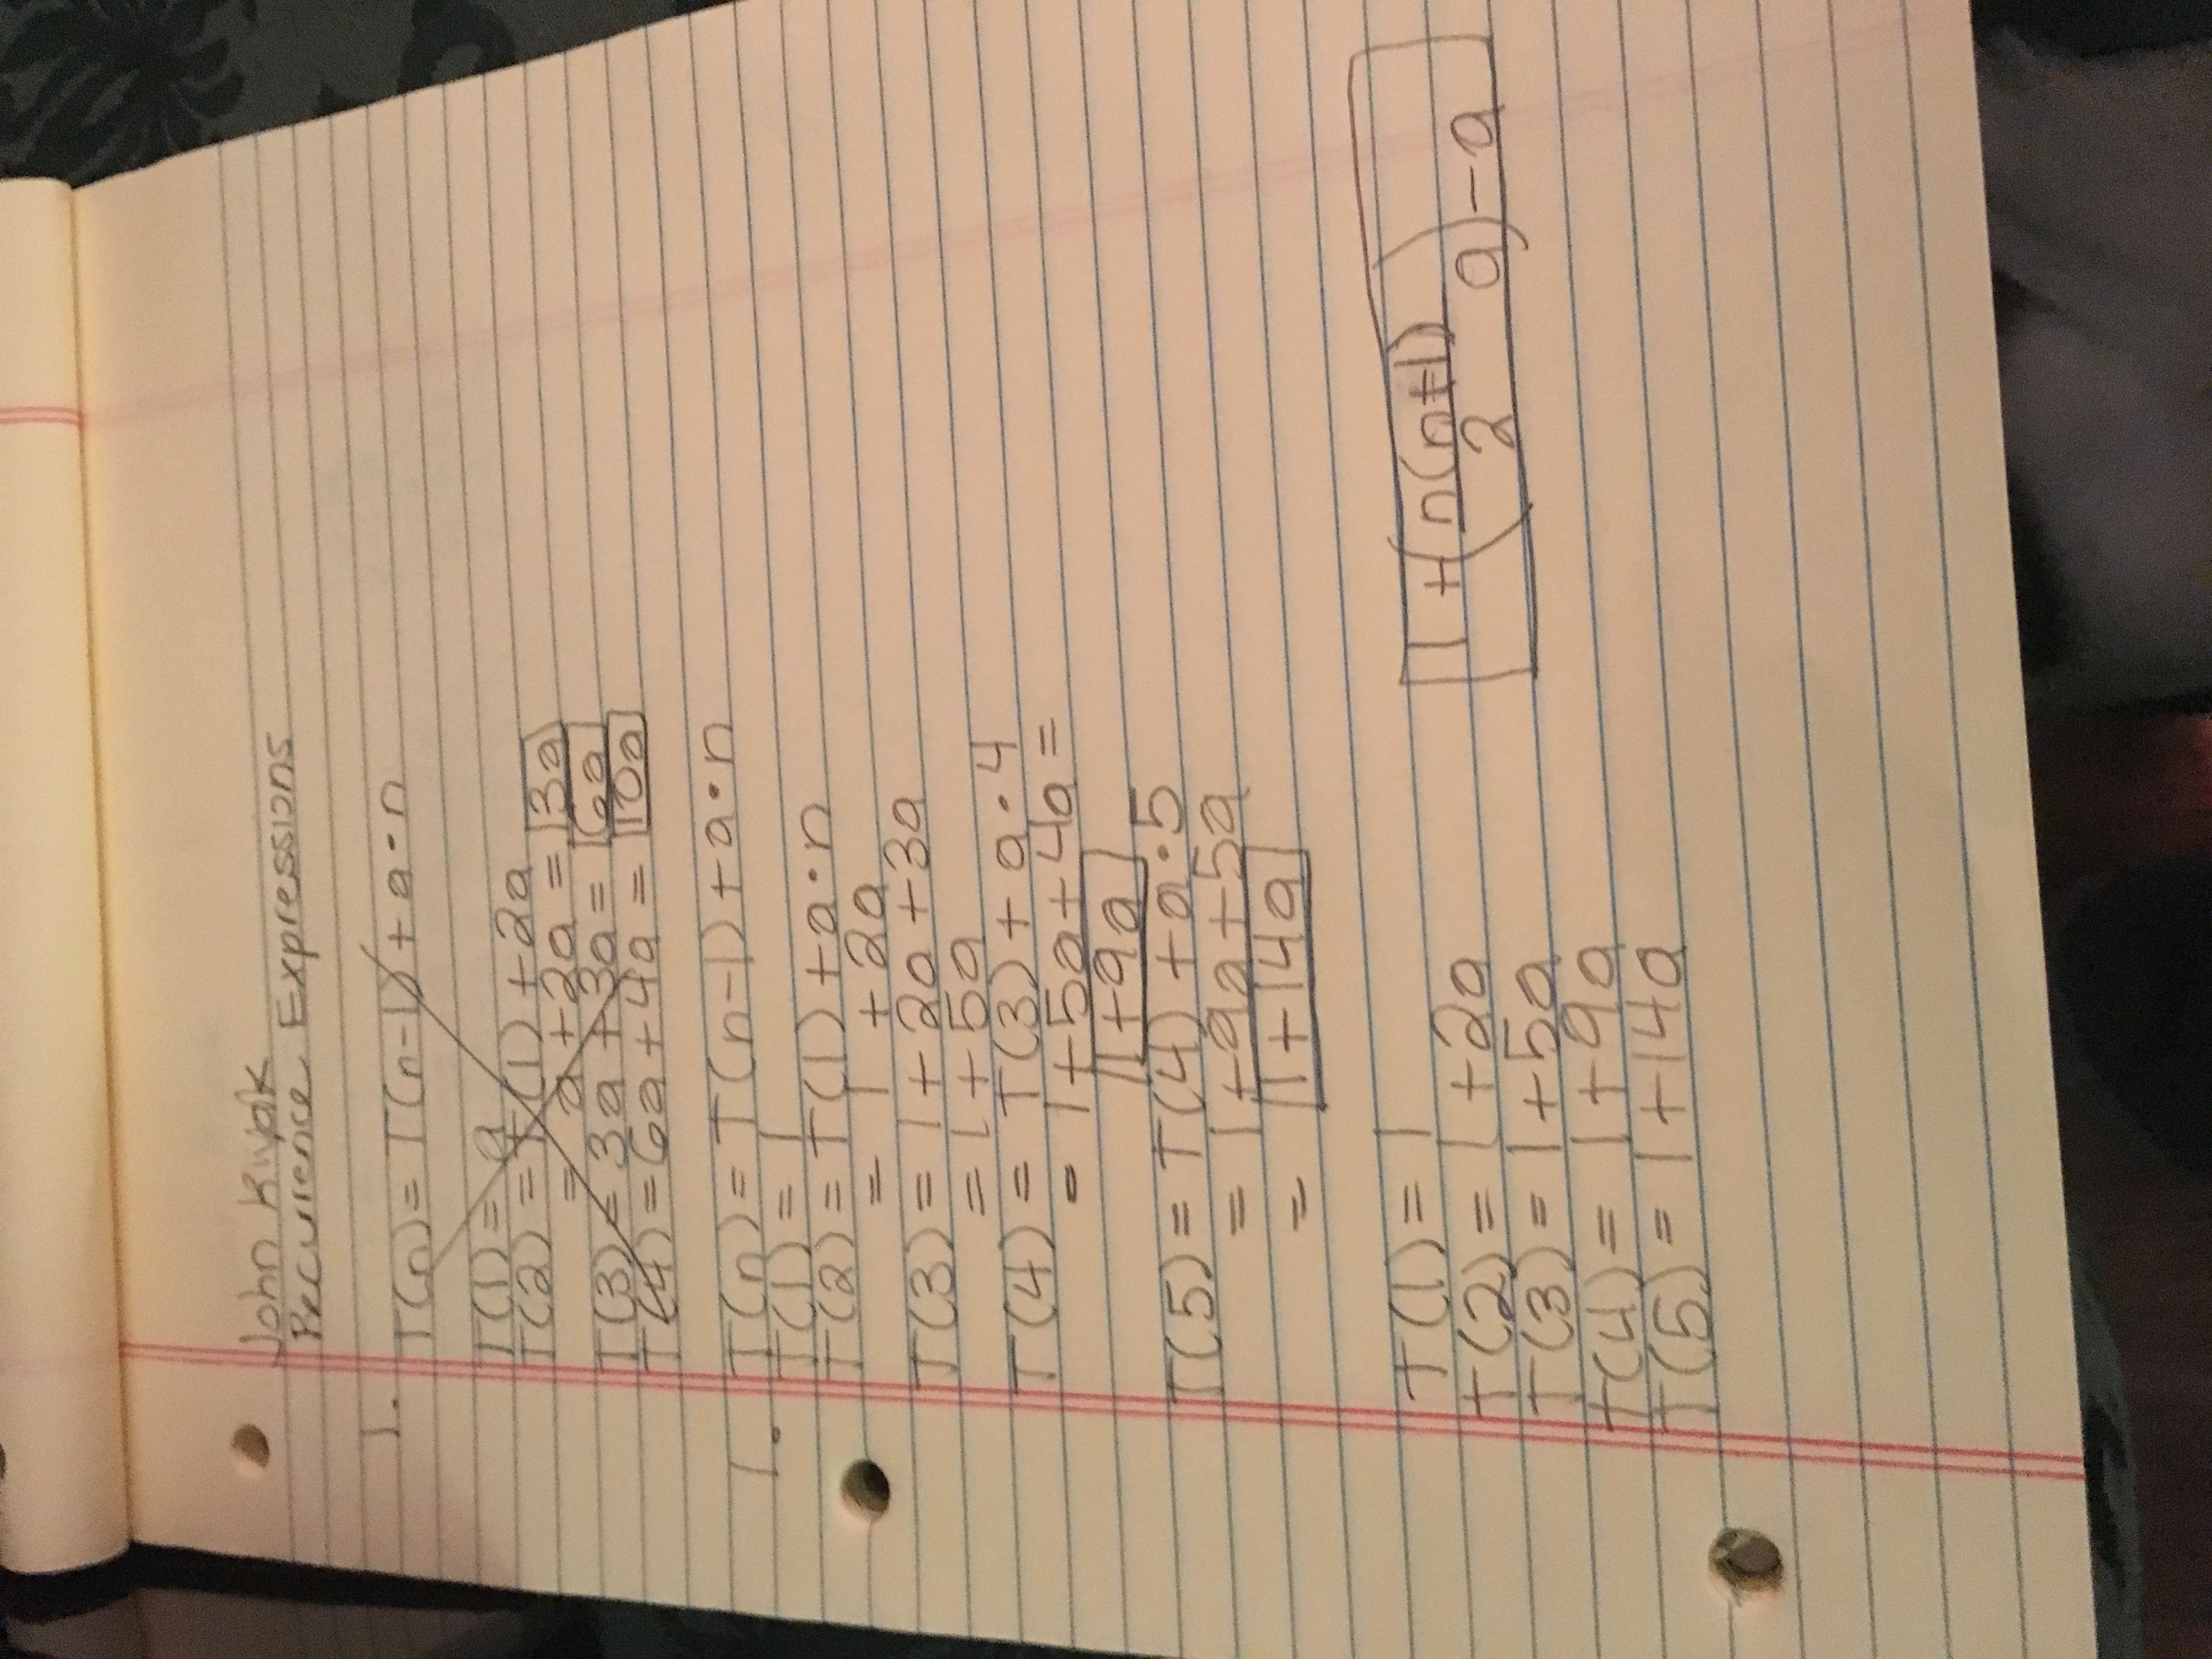 John Kwak
Recurrence Expressions
1. T(n) = T(n-1) + a·n
T(1) = a
T(2) = T(1) + 2a
= a + 2a = 3a
T(3) = 3a + 3a = 6a
T(4) = 6a + 4a = 10a
1. T(n) = T(n-1) + a·n
T(1) = 1
T(2) = T(1) + a·n
= 1 + 2a
T(3) = 1 + 2a + 3a
= 1 + 5a
T(4) = T(3) + a·4
= 1 + 5a + 4a =
1 + 9a
T(5) = T(4) + a·5
= 1 + 9a + 5a
= 1 + 14a
T(1) = 1
T(2) = 1 + 2a
T(3) = 1 + 5a
T(4) = 1 + 9a
T(5) = 1 + 14a
1 + (n(n+1)/2 a) - a